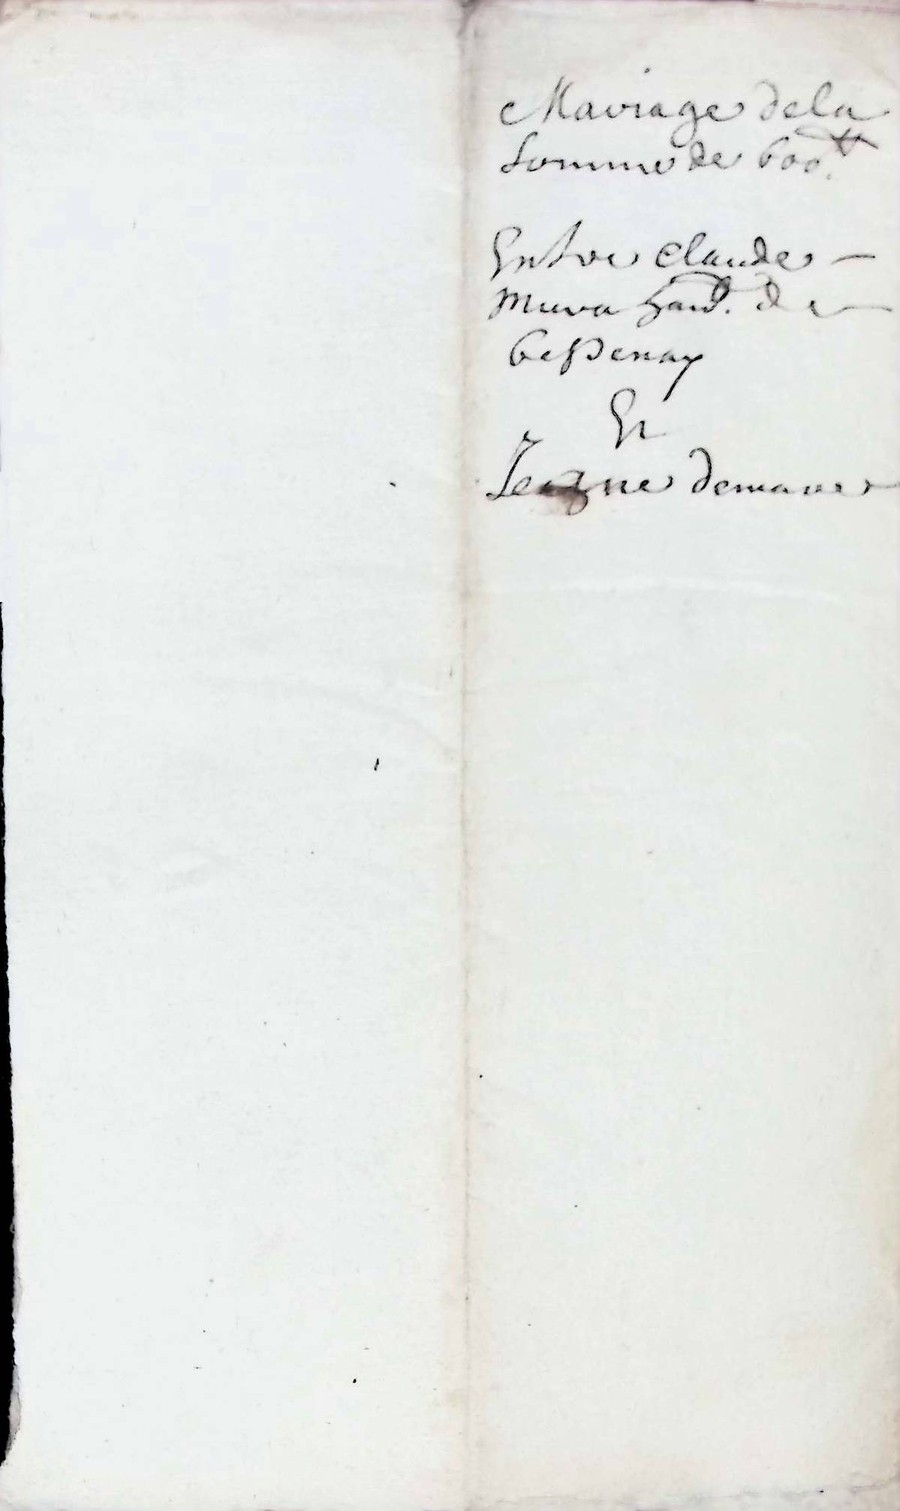 Mariage dela
Somme de 600 ₶.
Entre Claude –
Mura hant. de –
Bessenay
Et
Jeanne